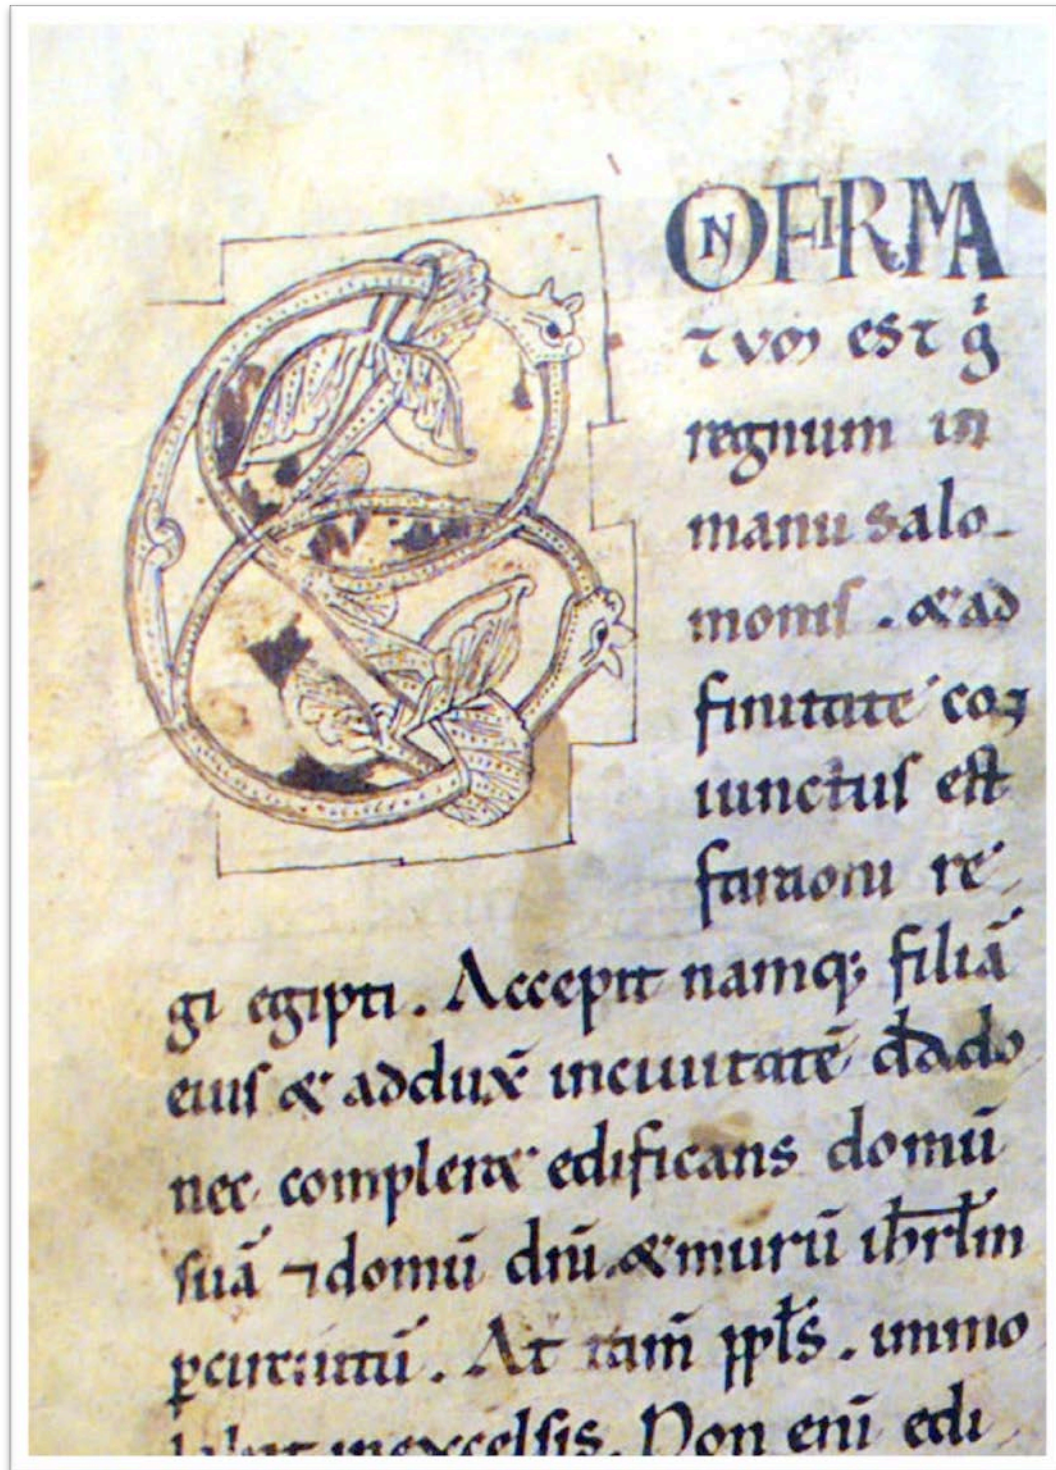 CONFIRMA
tum est g̊
regnum in
manu salo-
monis . & ad
finitate con
iunctus est
faraoni re-
gi egipti . Accepit namq; filiā
eius & addux̄ in ciuitatē dđ do
nec compleret edificans domū
suā ⁊ domū dn̄i . & murū ihrl̄m
p circuitū . At tam̄ ppl̄s . immo
labat in excelsis . Non eni̅ edi